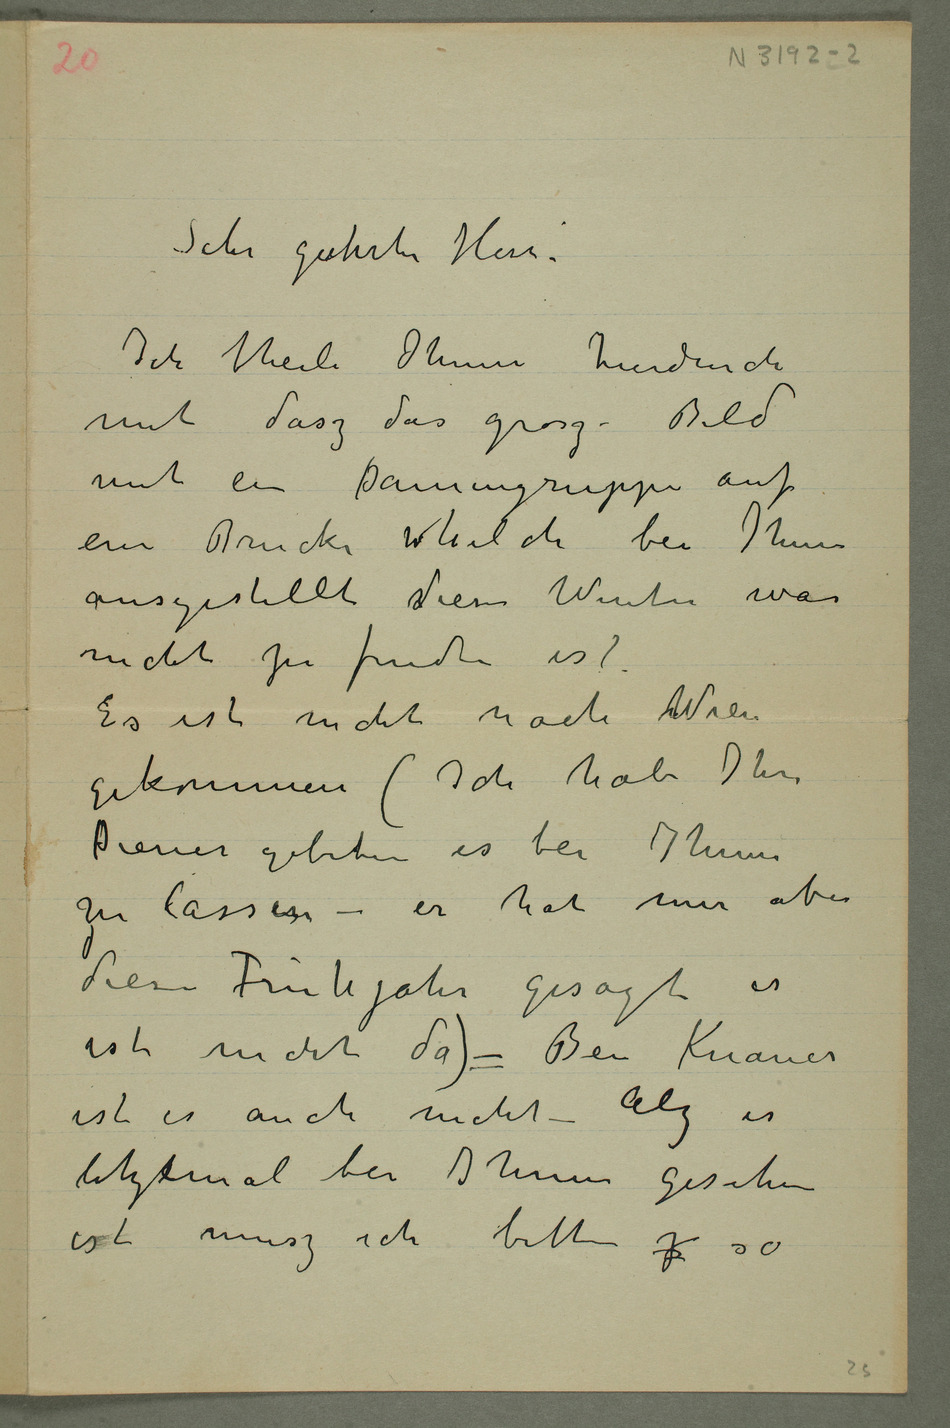 20
N 3192-2
Sehr geehrter Herr.
Ich theile Ihnen hierdurch
mit dasz das grosze Bild
mit ein Damengruppe auf
eine Brücke whelche bei Ihnen
ausgestellt diesen Winter war
nicht zu finden ist.
Es ist nicht nach Wien
gekommen (Ich habe Ihre
Diener gebeten es bei Ihnen
zu lassen – er hat mir aber
diesen Frühjahr gesagt es
ist nicht da) – Bei Knauer
ist es auch nicht – Alz es
letztmal bei Ihnen gesehen
ist musz ich bitten so
25